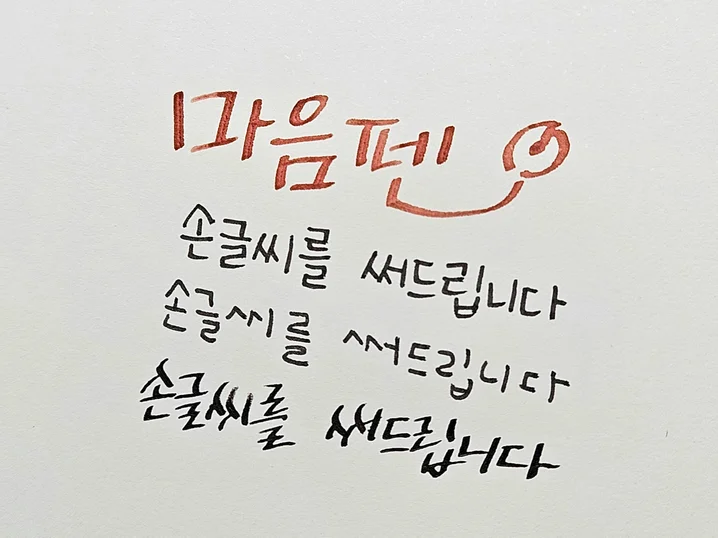 마음펜
손글씨를 써드립니다
손글씨를 써드립니다
손글씨를 써드립니다